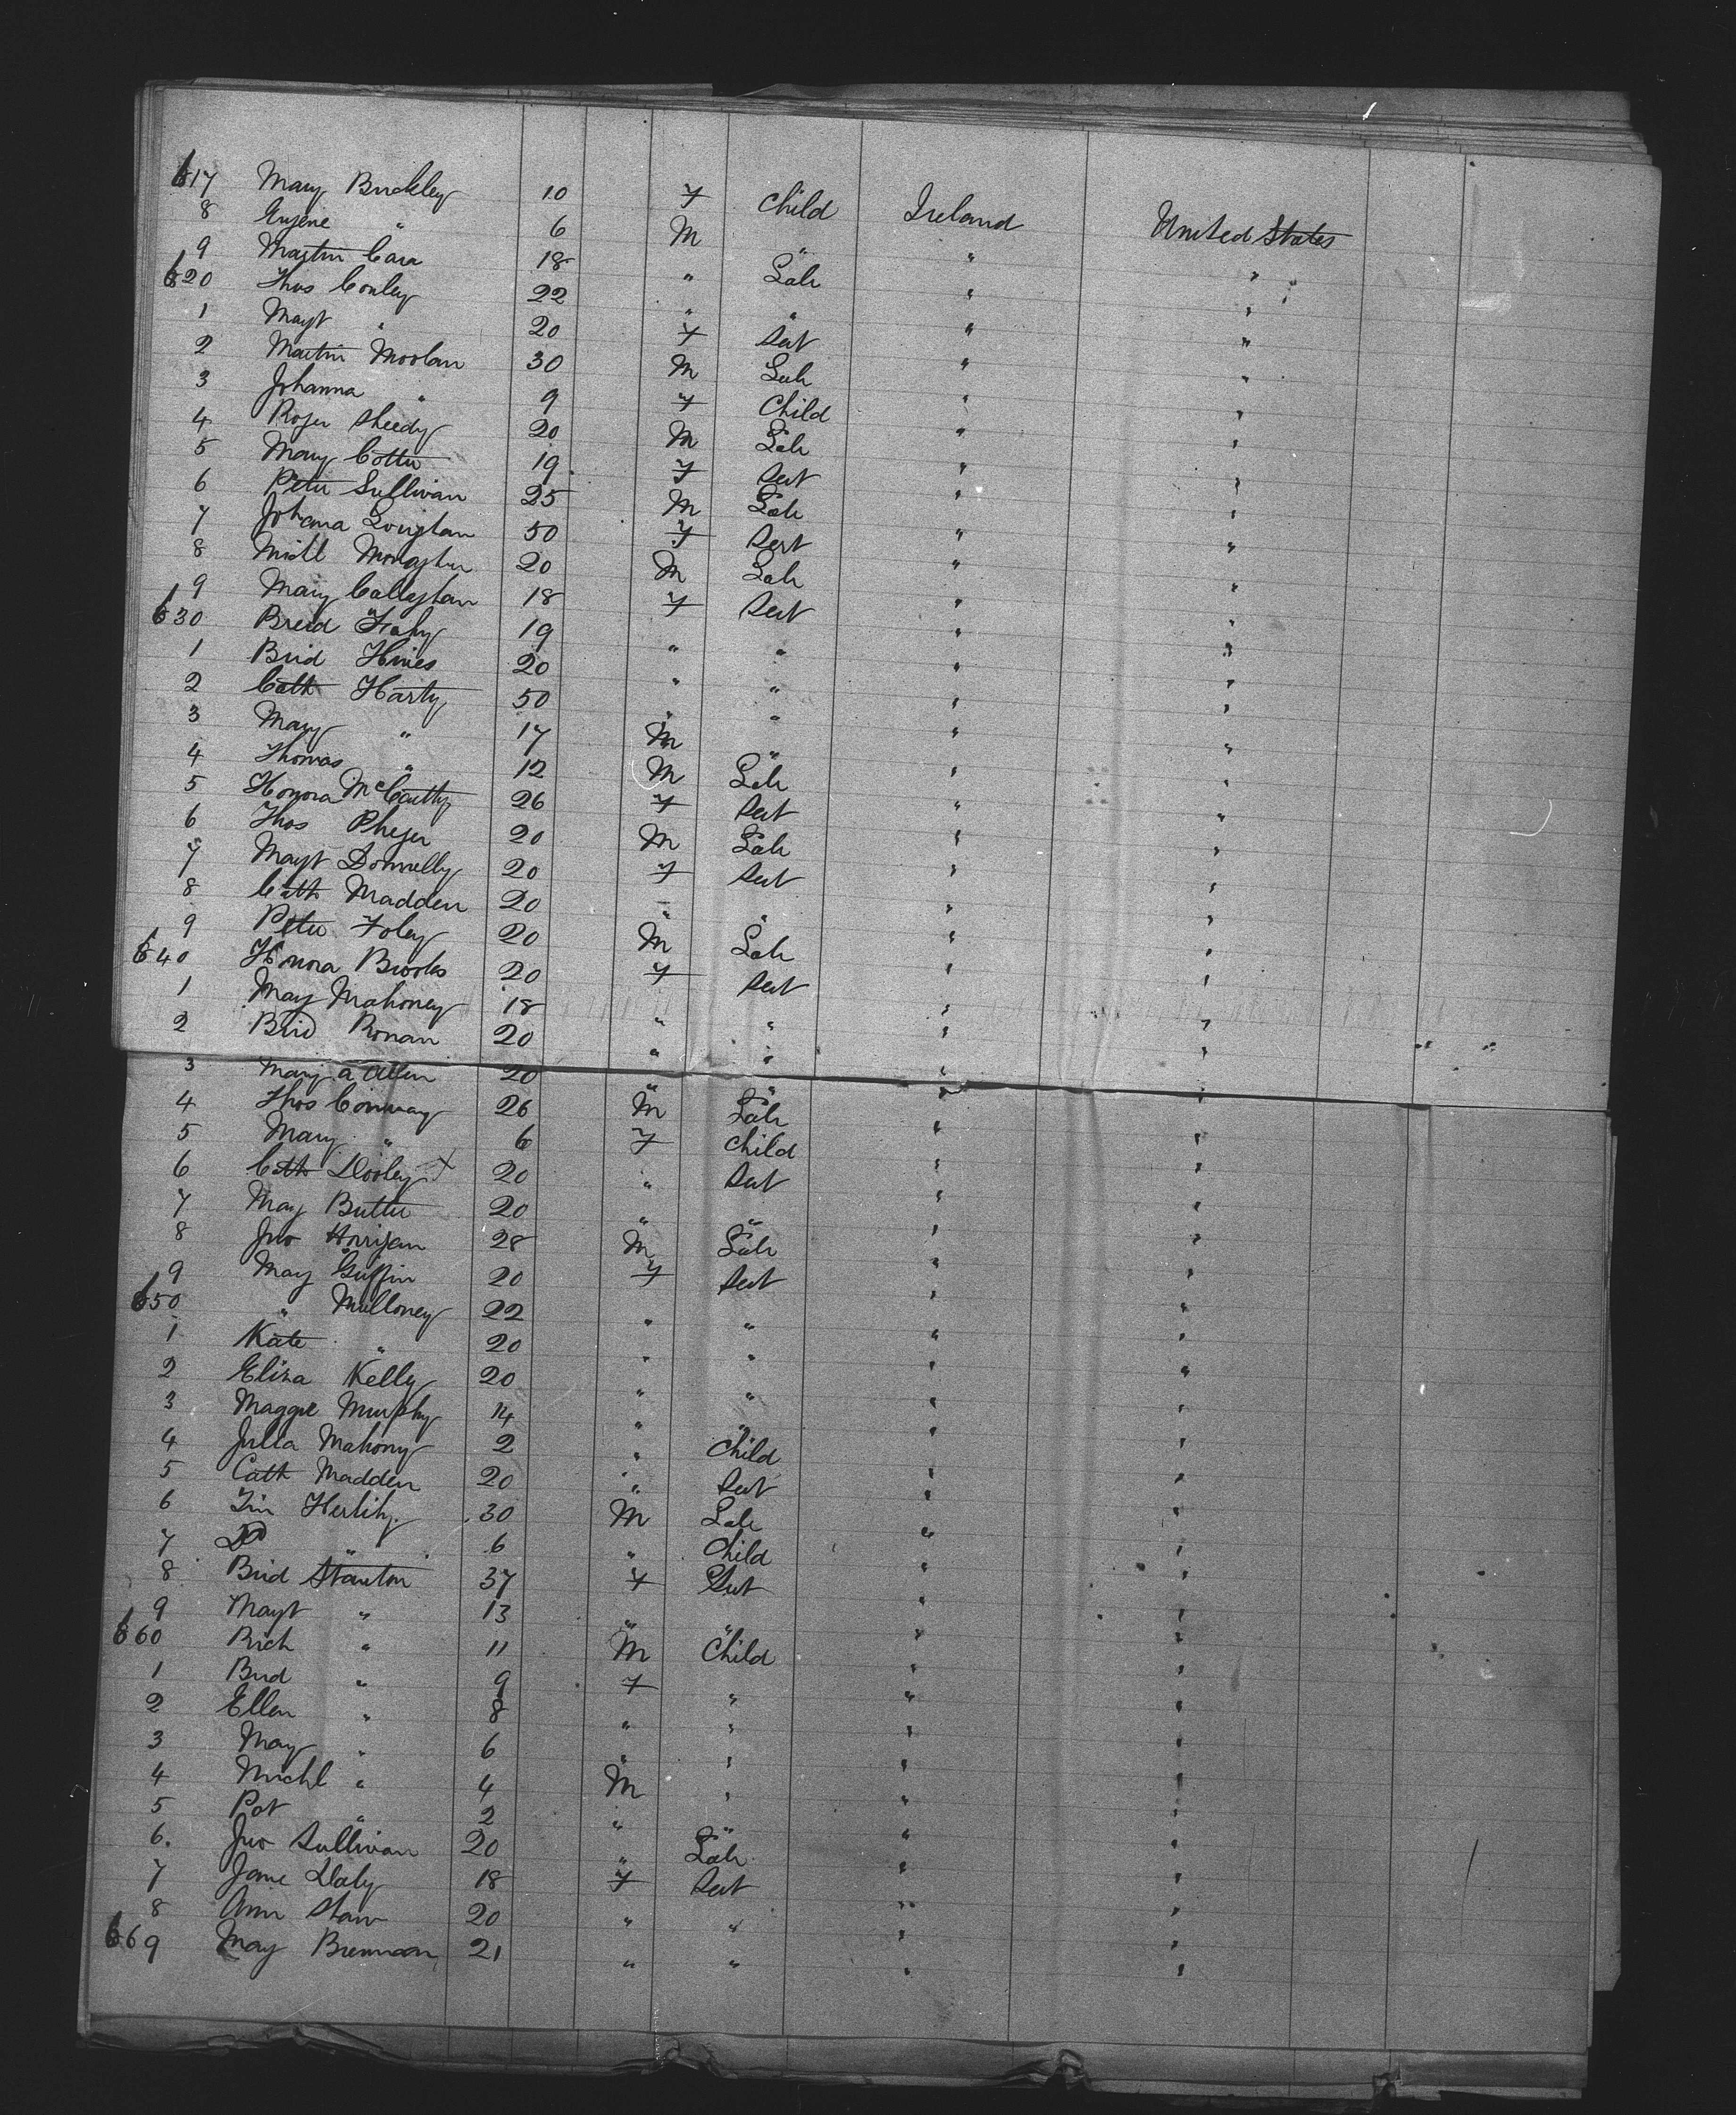 617 Mary Buckley 10 F Child Ireland United States
8 Eugene " 6 M " " "
9 Martin Cara 18 " Lab " "
620 Thos Conley 22 " " " "
1 Magt " 20 F Sert " "
2 Martin Moolan 30 M Lab " "
3 Johanna " 9 F Child " "
4 Roger Sheedy 20 M Lab " "
5 Mary Cotter 19 F Sert " "
6 Peter Sullivan 25 M Lab " "
7 Johana Loughlan 50 F Sert " "
8 Michl 20 M Lab " "
9 Mary Callaghan 18 F Sert " "
630 Breid Fahy 19 " " " "
1 Brid Hines 20 " " " "
2 Cath Harty 50 " " " "
3 Mary " 17 M " " "
4 Thomas " 12 M Lab " "
5 Honora McCarthy 26 F Sert " "
6 Thos 20 M Lab " "
7 Magt Donnelly 20 F Sert " "
8 Cath Madden 20 " " " "
9 Peter Foley 20 M Lab " "
640 Honora Brooks 20 F Sert " "
1 May Mahoney 18 " " " "
2 Brid Ronan 20 " " " "
3 Mary a Allen 20 " " " "
4 Thos Conway 26 M Lab " "
5 Mary " 6 F Child " "
6 Cath Dooley x 20 " Sert " "
7 May Butler 20 " " " "
8 Jno Horrigan 28 M Lab " "
9 May Griffin 20 F Sert " "
650 " Mulloney 22 " " " "
1 Kate " 20 " " " "
2 Eliza Kelly 20 " " " "
3 Maggie Murphy 14 " " " "
4 Julia Mahony 2 " Child " "
5 Cath Madden 20 " Sert " "
6 Tim Herlihy 30 M Lab " "
7 Do " 6 " Child " "
8 Brid Stanton 37 F Sert " "
9 Magt " 13 " " " "
660 Rich " 11 M Child " "
1 Brid " 9 F " " "
2 Ellen " 8 " " " "
3 May " 6 " " " "
4 Michl " 4 M " " "
5 Pat " 2 " " " "
6. Jno Sullivan 20 " Lab " "
7 Jane Daly 18 F Sert " "
8 Ann Shaw 20 " " " "
669 May Brennan 21 " " " "